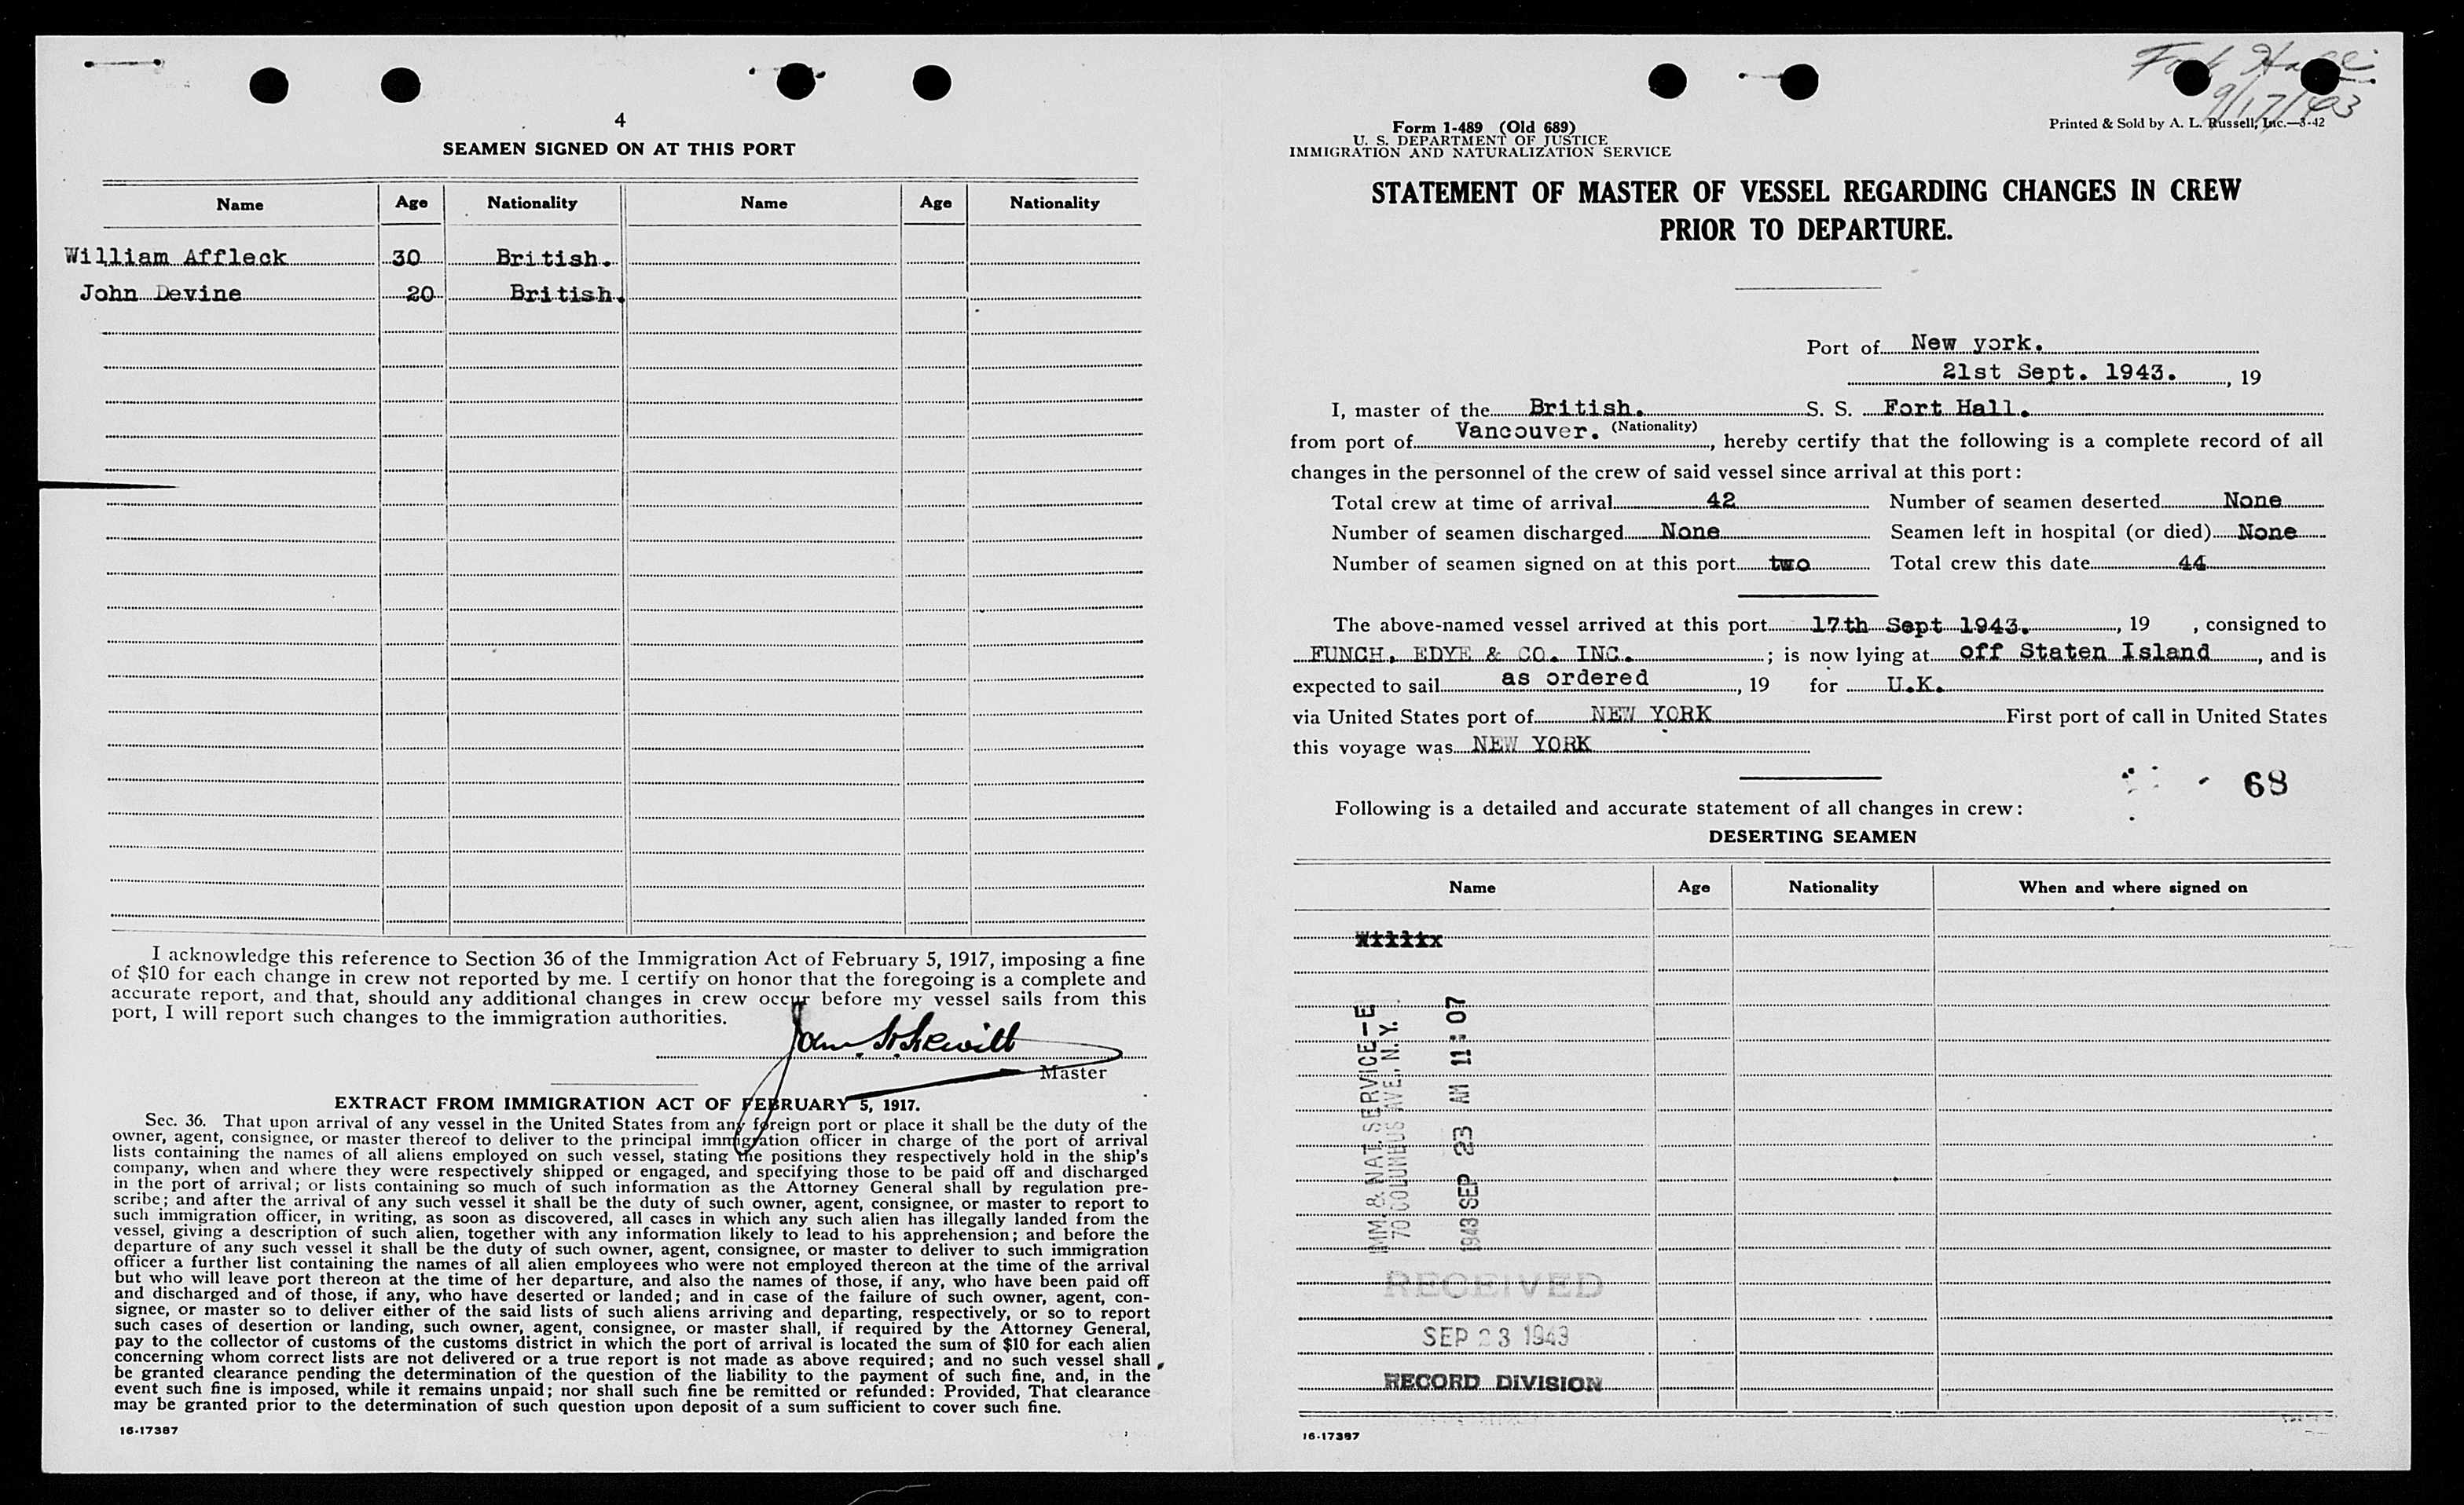 4
SEAMEN SIGNED ON AT THIS PORT
Name Age Nationality Name Age Nationality
William Affleck 30 British.
John Devine 20 British.
I acknowledge this reference to Section 36 of the Immigration Act of February 5, 1917, imposing a fine
of $10 for each change in crew not reported by me. I certify on honor that the foregoing is a complete and
accurate report, and that, should any additional changes in crew occur before my vessel sails from this
port, I will report such changes to the immigration authorities.
Master
EXTRACT FROM IMMIGRATION ACT OF FEBRUARY 5, 1917.
Sec. 36. That upon arrival of any vessel in the United States from any foreign port or place it shall be the duty of the
owner, agent, consignee, or master thereof to deliver to the principal immigration officer in charge of the port of arrival
lists containing the names of all aliens employed on such vessel, stating the positions they respectively hold in the ship's
company, when and where they were respectively shipped or engaged, and specifying those to be paid off and discharged
in the port of arrival; or lists containing so much of such information as the Attorney General shall by regulation pre-
scribe; and after the arrival of any such vessel it shall be the duty of such owner, agent, consignee, or master to report to
such immigration officer, in writing, as soon as discovered, all cases in which any such alien has illegally landed from the
vessel, giving a description of such alien, together with any information likely to lead to his apprehension; and before the
departure of any such vessel it shall be the duty of such owner, agent, consignee, or master to deliver to such immigration
officer a further list containing the names of all alien employees who were not employed thereon at the time of the arrival
but who will leave port thereon at the time of her departure, and also the names of those, if any, who have been paid off
and discharged and of those, if any, who have deserted or landed; and in case of the failure of such owner, agent, con-
signee, or master so to deliver either of the said lists of such aliens arriving and departing, respectively, or so to report
such cases of desertion or landing, such owner, agent, consignee, or master shall, if required by the Attorney General,
pay to the collector of customs of the customs district in which the port of arrival is located the sum of $10 for each alien
concerning whom correct lists are not delivered or a true report is not made as above required; and no such vessel shall
be granted clearance pending the determination of the question of the liability to the payment of such fine, and, in the
event such fine is imposed, while it remains unpaid; nor shall such fine be remitted or refunded: Provided, That clearance
may be granted prior to the determination of such question upon deposit of a sum sufficient to cover such fine.
16-17387
Fort Hall
9/17/43
Form 1-489 (Old 689)
U. S. DEPARTMENT OF JUSTICE
IMMIGRATION AND NATURALIZATION SERVICE
Printed & Sold by A. L. Russell, Inc.—3-42
STATEMENT OF MASTER OF VESSEL REGARDING CHANGES IN CREW
PRIOR TO DEPARTURE.
Port of New york.
21st Sept. 1943. , 19
I, master of the British. S. S. Fort Hall.
(Nationality)
from port of Vancouver. , hereby certify that the following is a complete record of all
changes in the personnel of the crew of said vessel since arrival at this port:
Total crew at time of arrival 42 Number of seamen deserted None
Number of seamen discharged None Seamen left in hospital (or died) None
Number of seamen signed on at this port two Total crew this date 44
The above-named vessel arrived at this port 17th Sept 1943. , 19 , consigned to
FUNCH, EDYE & CO. INC. ; is now lying at off Staten Island , and is
expected to sail as ordered , 19 for U.K.
via United States port of NEW YORK First port of call in United States
this voyage was NEW YORK
68
Following is a detailed and accurate statement of all changes in crew:
DESERTING SEAMEN
Name Age Nationality When and where signed on
IMM. & NAT. SERVICE-E
70 COLUMBUS AVE., N.Y.
1943 SEP 23 AM 11:07
RECEIVED
SEP 23 1943
RECORD DIVISION
16-17387